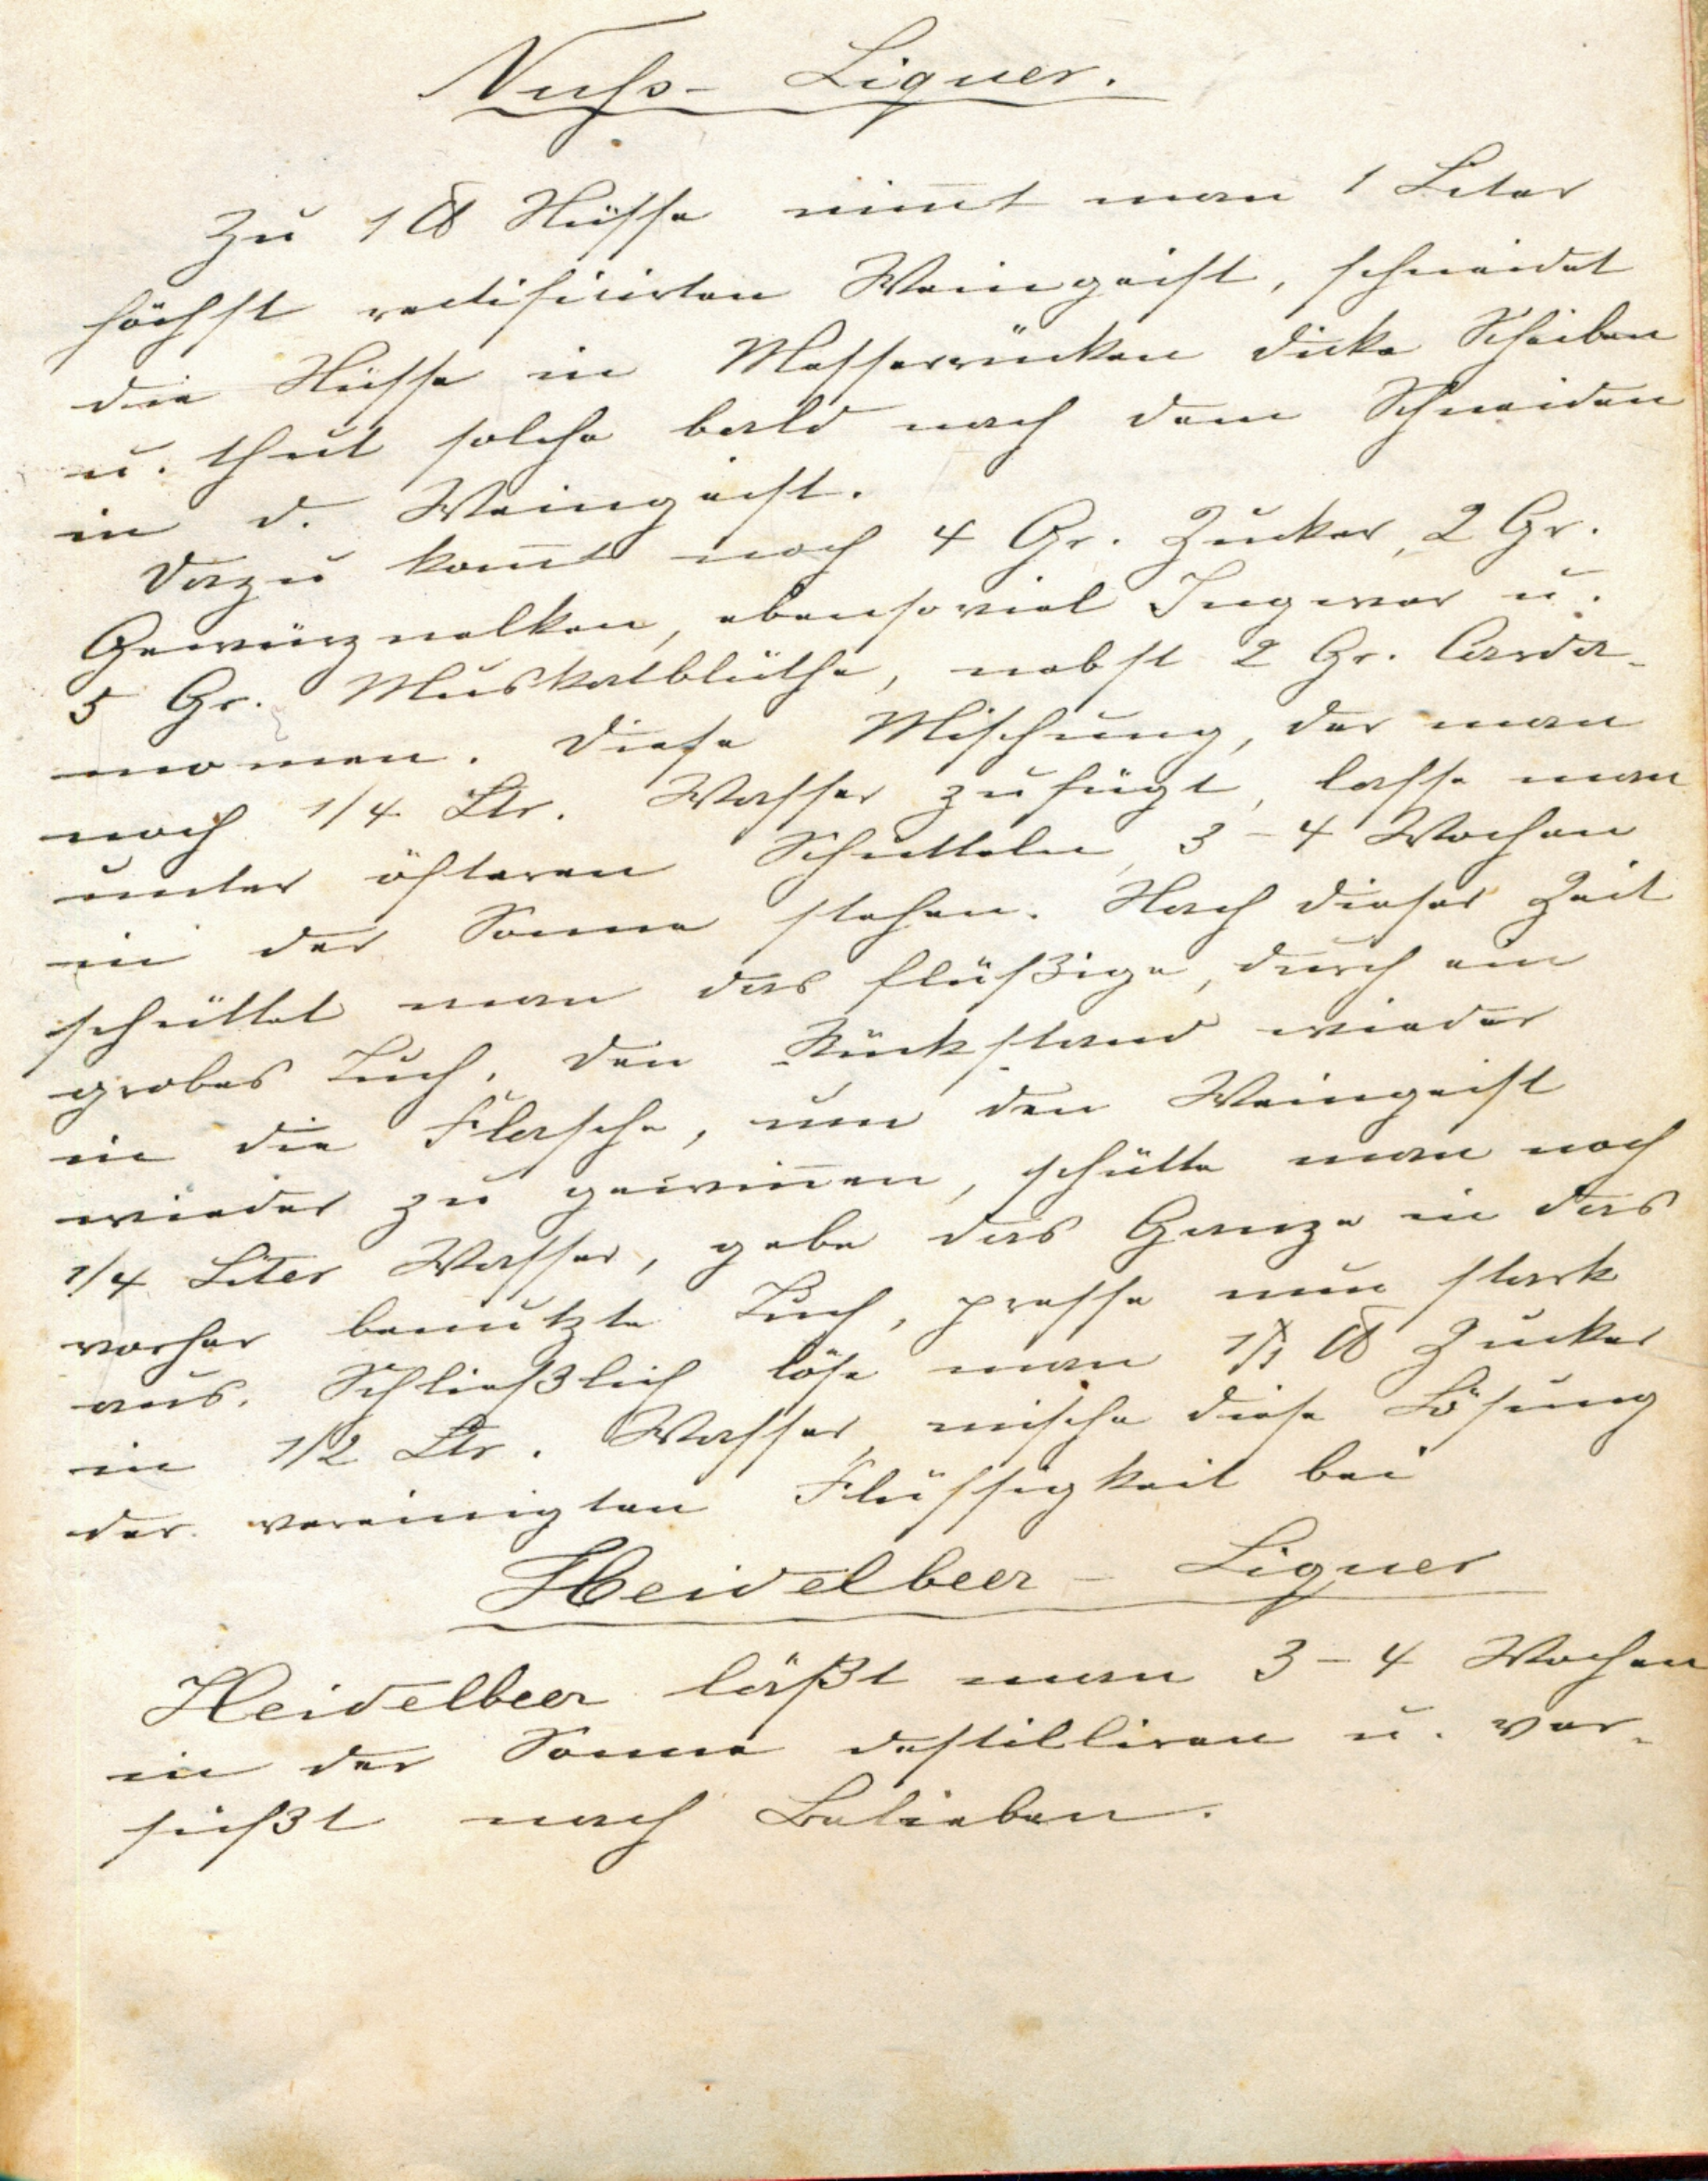 Nuss- Liquer.
Zu 1 ℔ Nüsse nim̅t man 1 Liter
höchst rectificirten Weingeist, schneidet
die Nüsse in Messerrücken dicke Scheiben
u. thut solche bald nach dem Schneiden
in d. Weingeist.
Dazu kom̅t noch 4 Gr. Zucker, 2 Gr.
Gewürznelken, ebensoviel Ingwer u.
5 Gr. Muskatblüthe, nebst 2 Gr. Carda-
momen. Diese Mischung, der man
noch 1/4 Ltr. Wasser zufügt, lasse man
unter öfteren Schütteln, 3-4 Wochen
in der Sonne stehen. Nach dieser Zeit
schüttet man das flüßige, durch ein
grobes Tuch. Den Rückstand wieder
in die Flasche, um den Weingeist
wieder zu gewin̅en, schütte man noch
1/4 Liter Wasser, gebe das Ganze in das
vorher benutzte Tuch, presse nun stark
aus. Schließlich löse man ℔ Zucker
in 1/2 Ltr. Wasser, mische diese Lösung
der vereinigten Flüssigkeit bei
Heidelbeer- Liquer
Heidelbeer läßt man 3-4 Wochen
in der Sonne destilliren u. ver-
süßt nach Belieben.